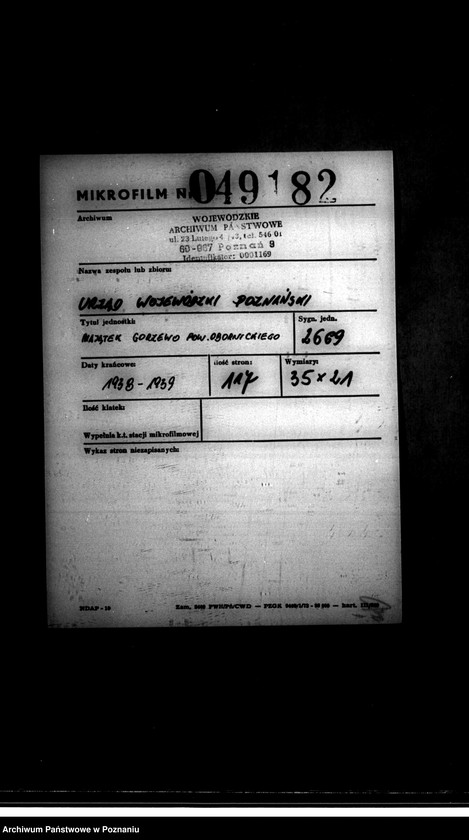 MIKROFILM Nr 049182
Archiwum
WOJEWÓDZKIE
ARCHIWUM PAŃSTWOWE
ul. 23 Lutego tel. 546 01
60-967 Poznań 9
Identyfikator: 0001169
Nazwa zespołu lub zbioru:
URZĄD WOJEWÓDZKI POZNAŃSKI
Tytuł jednostki
Sygn. jedn.
MAJĄTEK GORZEWO POW. OBORNICKIEGO
2669
Daty krańcowe:
Ilość stron:
Wymiary:
1938-1939
117
35 x 21
Ilość klatek:
Wypełnia k.t. stacji mikrofilmowej
Wykaz stron niezapisanych:
NDAP-10
Zam. PWIUP4/CWD — PZGK — kart.
Archiwum Państwowe w Poznaniu